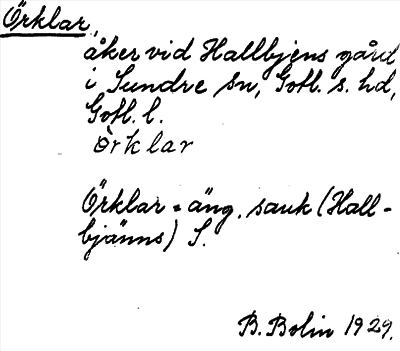 Örklar,
åker vid Hallbjens gård
i Sundre sn, Gotl. s. hd,
Gotl. l.
òrklar
Örklar = äng. sauk (Hall-
bjänns) S.
B. Bolin 1929.